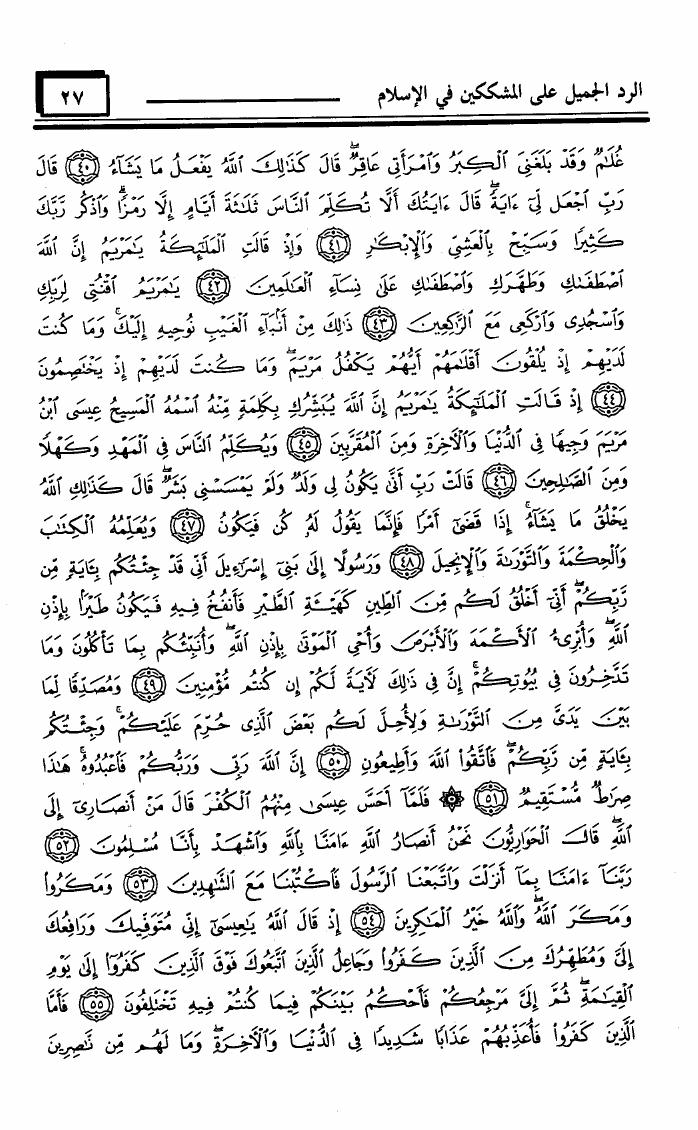 الرد الجميل على المشككين في الإسلام
٢٧
غُلَٰمٌ وَقَدْ بَلَغَنِىَ ٱلْكِبَرُ وَٱمْرَأَتِى عَاقِرٌ ۖ قَالَ كَذَٰلِكَ ٱللَّهُ يَفْعَلُ مَا يَشَآءُ ﴿٤٠﴾ قَالَ
رَبِّ ٱجْعَل لِّىٓ ءَايَةً ۖ قَالَ ءَايَتُكَ أَلَّا تُكَلِّمَ ٱلنَّاسَ ثَلَٰثَةَ أَيَّامٍ إِلَّا رَمْزًا ۗ وَٱذْكُر رَّبَّكَ
كَثِيرًا وَسَبِّحْ بِٱلْعَشِىِّ وَٱلْإِبْكَٰرِ ﴿٤١﴾ وَإِذْ قَالَتِ ٱلْمَلَٰٓئِكَةُ يَٰمَرْيَمُ إِنَّ ٱللَّهَ
ٱصْطَفَىٰكِ وَطَهَّرَكِ وَٱصْطَفَىٰكِ عَلَىٰ نِسَآءِ ٱلْعَٰلَمِينَ ﴿٤٢﴾ يَٰمَرْيَمُ ٱقْنُتِى لِرَبِّكِ
وَٱسْجُدِى وَٱرْكَعِى مَعَ ٱلرَّٰكِعِينَ ﴿٤٣﴾ ذَٰلِكَ مِنْ أَنۢبَآءِ ٱلْغَيْبِ نُوحِيهِ إِلَيْكَ ۚ وَمَا كُنتَ
لَدَيْهِمْ إِذْ يُلْقُونَ أَقْلَٰمَهُمْ أَيُّهُمْ يَكْفُلُ مَرْيَمَ ۖ وَمَا كُنتَ لَدَيْهِمْ إِذْ يَخْتَصِمُونَ
﴿٤٤﴾ إِذْ قَالَتِ ٱلْمَلَٰٓئِكَةُ يَٰمَرْيَمُ إِنَّ ٱللَّهَ يُبَشِّرُكِ بِكَلِمَةٍ مِّنْهُ ٱسْمُهُ ٱلْمَسِيحُ عِيسَى ٱبْنُ
مَرْيَمَ وَجِيهًا فِى ٱلدُّنْيَا وَٱلْءَاخِرَةِ وَمِنَ ٱلْمُقَرَّبِينَ ﴿٤٥﴾ وَيُكَلِّمُ ٱلنَّاسَ فِى ٱلْمَهْدِ وَكَهْلًا
وَمِنَ ٱلصَّٰلِحِينَ ﴿٤٦﴾ قَالَتْ رَبِّ أَنَّىٰ يَكُونُ لِى وَلَدٌ وَلَمْ يَمْسَسْنِى بَشَرٌ ۖ قَالَ كَذَٰلِكِ ٱللَّهُ
يَخْلُقُ مَا يَشَآءُ ۚ إِذَا قَضَىٰٓ أَمْرًا فَإِنَّمَا يَقُولُ لَهُۥ كُن فَيَكُونُ ﴿٤٧﴾ وَيُعَلِّمُهُ ٱلْكِتَٰبَ
وَٱلْحِكْمَةَ وَٱلتَّوْرَىٰةَ وَٱلْإِنجِيلَ ﴿٤٨﴾ وَرَسُولًا إِلَىٰ بَنِىٓ إِسْرَٰٓءِيلَ أَنِّى قَدْ جِئْتُكُم بِـَٔايَةٍ مِّن
رَّبِّكُمْ ۖ أَنِّىٓ أَخْلُقُ لَكُم مِّنَ ٱلطِّينِ كَهَيْـَٔةِ ٱلطَّيْرِ فَأَنفُخُ فِيهِ فَيَكُونُ طَيْرًۢا بِإِذْنِ
ٱللَّهِ ۖ وَأُبْرِئُ ٱلْأَكْمَهَ وَٱلْأَبْرَصَ وَأُحْىِ ٱلْمَوْتَىٰ بِإِذْنِ ٱللَّهِ ۖ وَأُنَبِّئُكُم بِمَا تَأْكُلُونَ وَمَا
تَدَّخِرُونَ فِى بُيُوتِكُمْ ۚ إِنَّ فِى ذَٰلِكَ لَءَايَةً لَّكُمْ إِن كُنتُم مُّؤْمِنِينَ ﴿٤٩﴾ وَمُصَدِّقًا لِّمَا
بَيْنَ يَدَىَّ مِنَ ٱلتَّوْرَىٰةِ وَلِأُحِلَّ لَكُم بَعْضَ ٱلَّذِى حُرِّمَ عَلَيْكُمْ ۚ وَجِئْتُكُم
بِـَٔايَةٍ مِّن رَّبِّكُمْ ۖ فَٱتَّقُوا۟ ٱللَّهَ وَأَطِيعُونِ ﴿٥٠﴾ إِنَّ ٱللَّهَ رَبِّى وَرَبُّكُمْ فَٱعْبُدُوهُ ۗ هَٰذَا
صِرَٰطٌ مُّسْتَقِيمٌ ﴿٥١﴾ ۞ فَلَمَّآ أَحَسَّ عِيسَىٰ مِنْهُمُ ٱلْكُفْرَ قَالَ مَنْ أَنصَارِىٓ إِلَى
ٱللَّهِ ۖ قَالَ ٱلْحَوَارِيُّونَ نَحْنُ أَنصَارُ ٱللَّهِ ءَامَنَّا بِٱللَّهِ وَٱشْهَدْ بِأَنَّا مُسْلِمُونَ ﴿٥٢﴾
رَبَّنَآ ءَامَنَّا بِمَآ أَنزَلْتَ وَٱتَّبَعْنَا ٱلرَّسُولَ فَٱكْتُبْنَا مَعَ ٱلشَّٰهِدِينَ ﴿٥٣﴾ وَمَكَرُوا۟
وَمَكَرَ ٱللَّهُ ۖ وَٱللَّهُ خَيْرُ ٱلْمَٰكِرِينَ ﴿٥٤﴾ إِذْ قَالَ ٱللَّهُ يَٰعِيسَىٰٓ إِنِّى مُتَوَفِّيكَ وَرَافِعُكَ
إِلَىَّ وَمُطَهِّرُكَ مِنَ ٱلَّذِينَ كَفَرُوا۟ وَجَاعِلُ ٱلَّذِينَ ٱتَّبَعُوكَ فَوْقَ ٱلَّذِينَ كَفَرُوٓا۟ إِلَىٰ يَوْمِ
ٱلْقِيَٰمَةِ ۖ ثُمَّ إِلَىَّ مَرْجِعُكُمْ فَأَحْكُمُ بَيْنَكُمْ فِيمَا كُنتُمْ فِيهِ تَخْتَلِفُونَ ﴿٥٥﴾ فَأَمَّا
ٱلَّذِينَ كَفَرُوا۟ فَأُعَذِّبُهُمْ عَذَابًا شَدِيدًا فِى ٱلدُّنْيَا وَٱلْءَاخِرَةِ وَمَا لَهُم مِّن نَّٰصِرِينَ